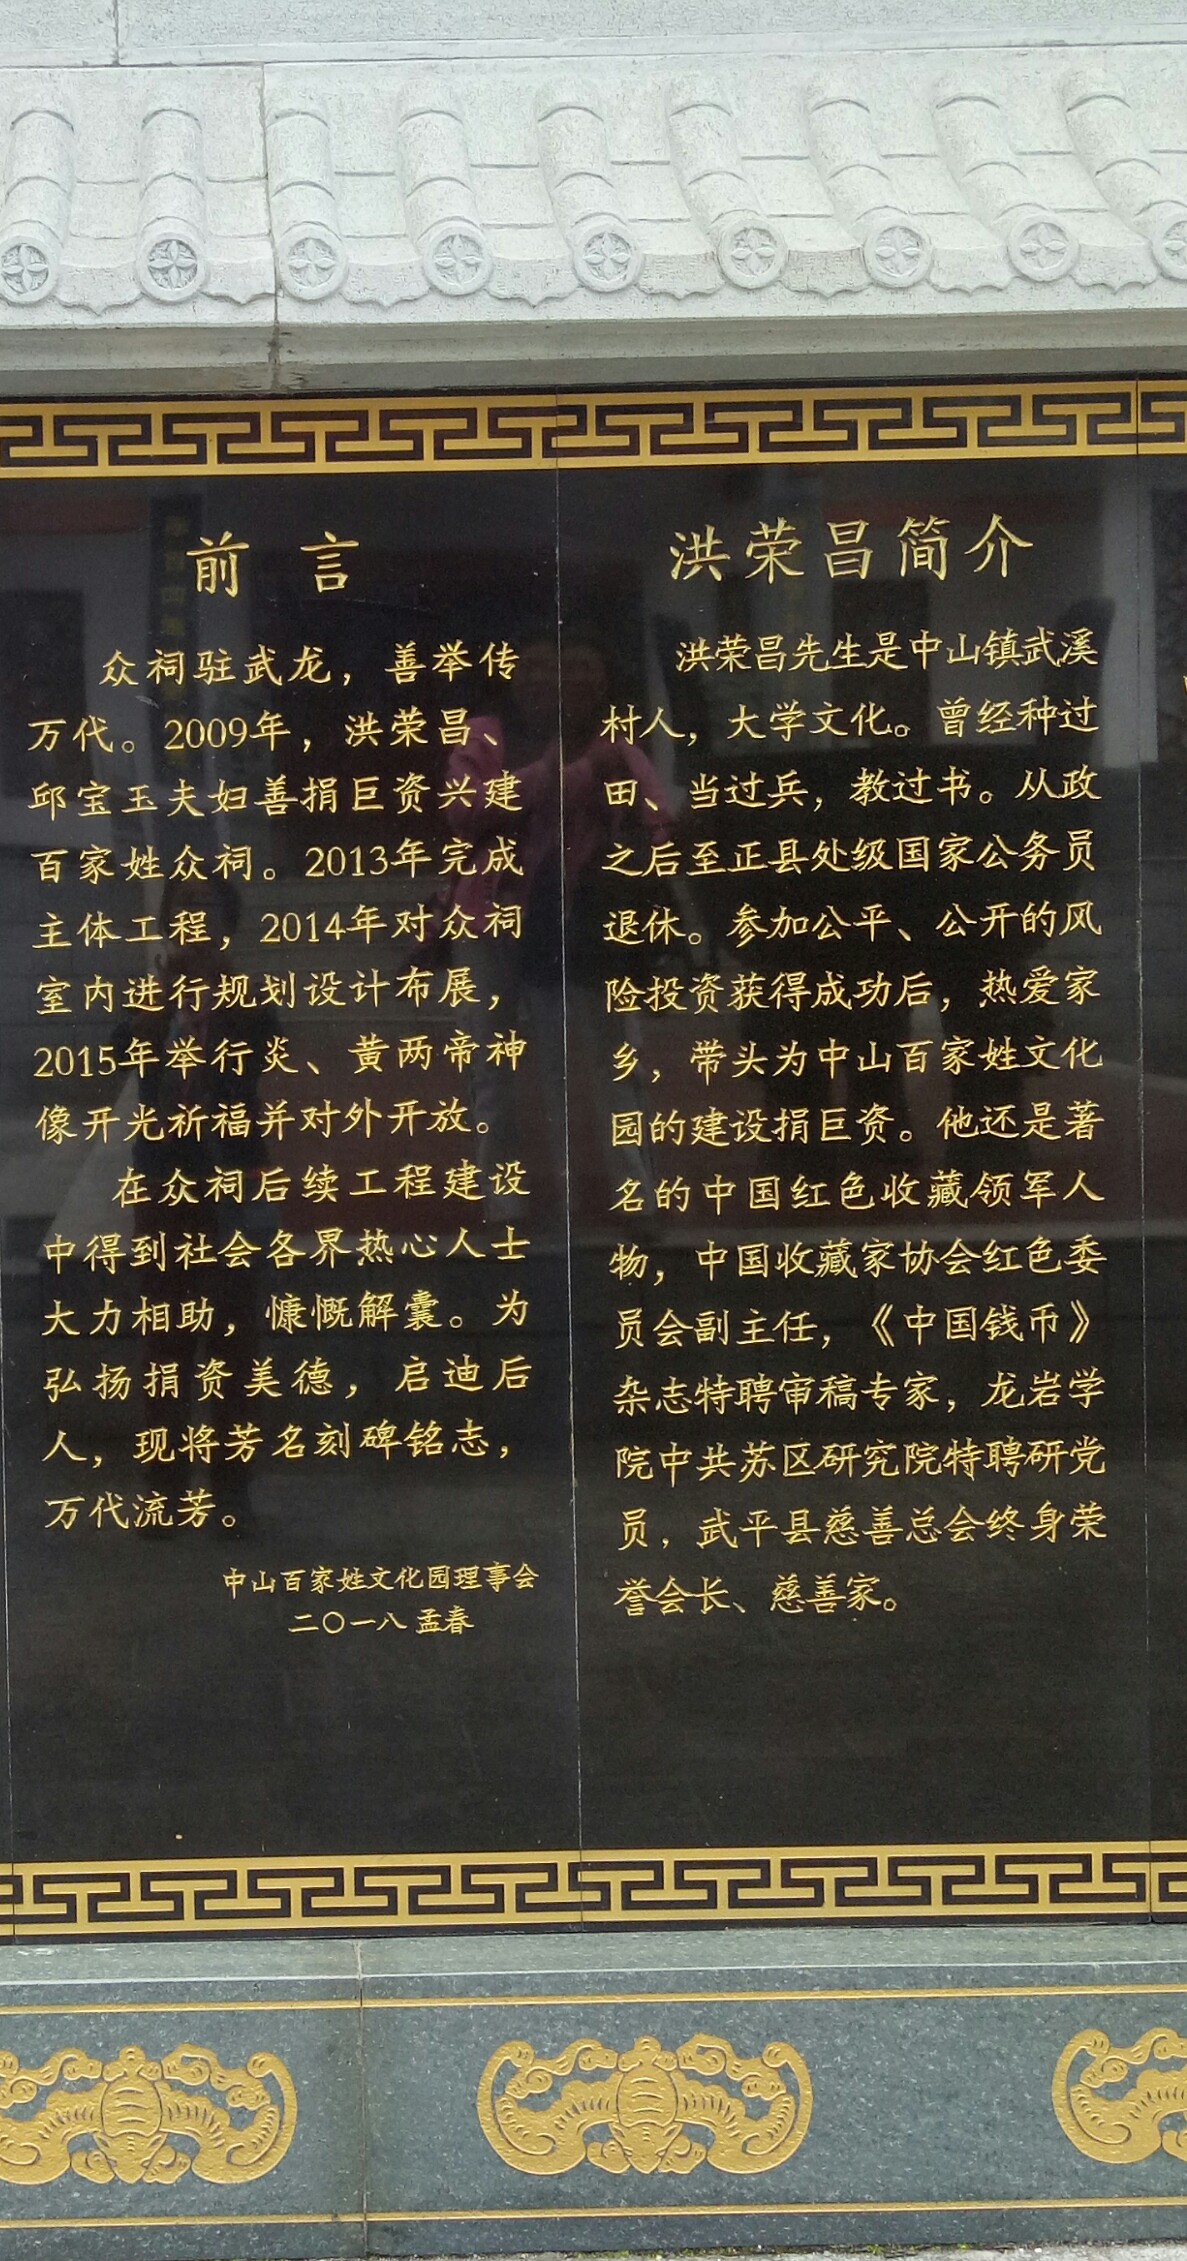 前言
众祠驻武龙，善举传
万代。2009年，洪荣昌、
邱宝玉夫妇善捐巨资兴建
百家姓众祠。2013年完成
主体工程，2014年对众祠
室内进行规划设计布展，
2015年举行炎、黄两帝神
像开光祈福并对外开放。
在众祠后续工程建设
中得到社会各界热心人士
大力相助，慷慨解囊。为
弘扬捐资美德，启迪后
人，现将芳名刻碑铭志，
万代流芳。
中山百家姓文化园理事会
二〇一八孟春
洪荣昌简介
洪荣昌先生是中山镇武溪
村人，大学文化。曾经种过
田、当过兵，教过书。从政
之后至正县处级国家公务员
退休。参加公平、公开的风
险投资获得成功后，热爱家
乡，带头为中山百家姓文化
园的建设捐巨资。他还是著
名的中国红色收藏领军人
物，中国收藏家协会红色委
员会副主任，《中国钱币》
杂志特聘审稿专家，龙岩学
院中共苏区研究院特聘研党
员，武平县慈善总会终身荣
誉会长、慈善家。